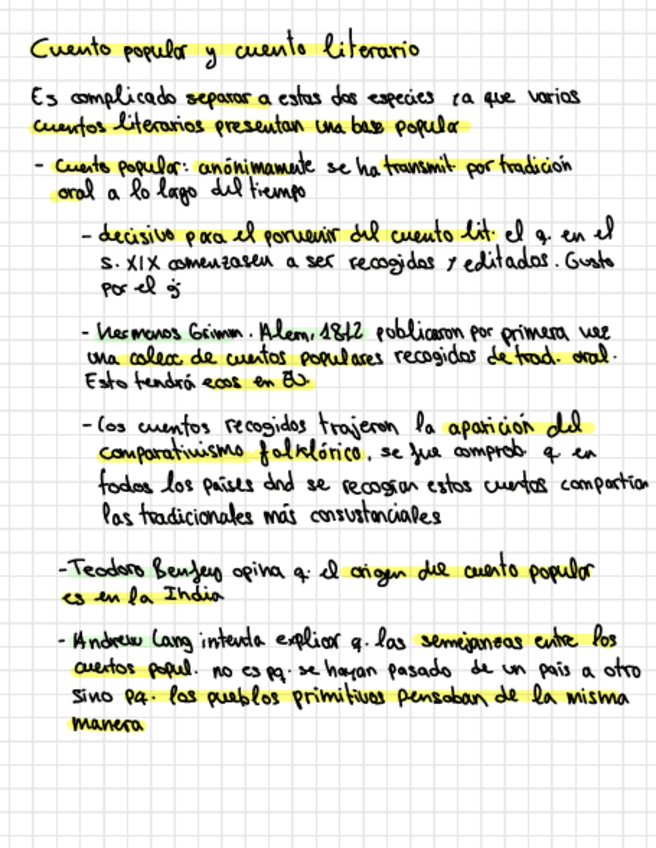 Cuento popular y cuento literario
Es complicado separar a estas dos especies ya que varios
cuentos literarios presentan una base popular
- Cuento popular: anónimamente se ha transmit. por tradición
oral a lo lago del tiempo
- decisivo para el porvenir del cuento lit. el q. en el
s. XIX comenzasen a ser recogidos y editados. Gusto
por el
- Hermanos Grimm. Alem, 1812 publicaron por primera vez
una colecc de cuentos populares recogidos de trad. oral.
Esto tendrá ecos en EU.
- Los cuentos recogidos trajeron la aparición del
comparativismo folklórico, se fue comprob. q en
todos los países dnd se recogían estos cuentos compartían
las tradicionales más consustanciales
- Teodoro Benfey opina q. el origen del cuento popular
es en la India
- Andrew Lang intenta explicar q. las semejanzas entre los
cuentos popul. no es pq. se hayan pasado de un país a otro
sino pq. los pueblos primitivos pensaban de la misma
manera